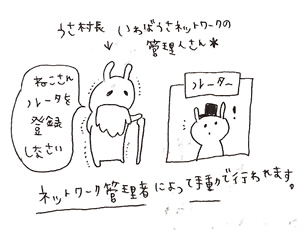 うさ村長 いわばうさネットワークの
管理人さん＊
ねこさん
ルータを
登録
しなさい
ルーター
!
ネットワーク管理者によって手動で行われます。